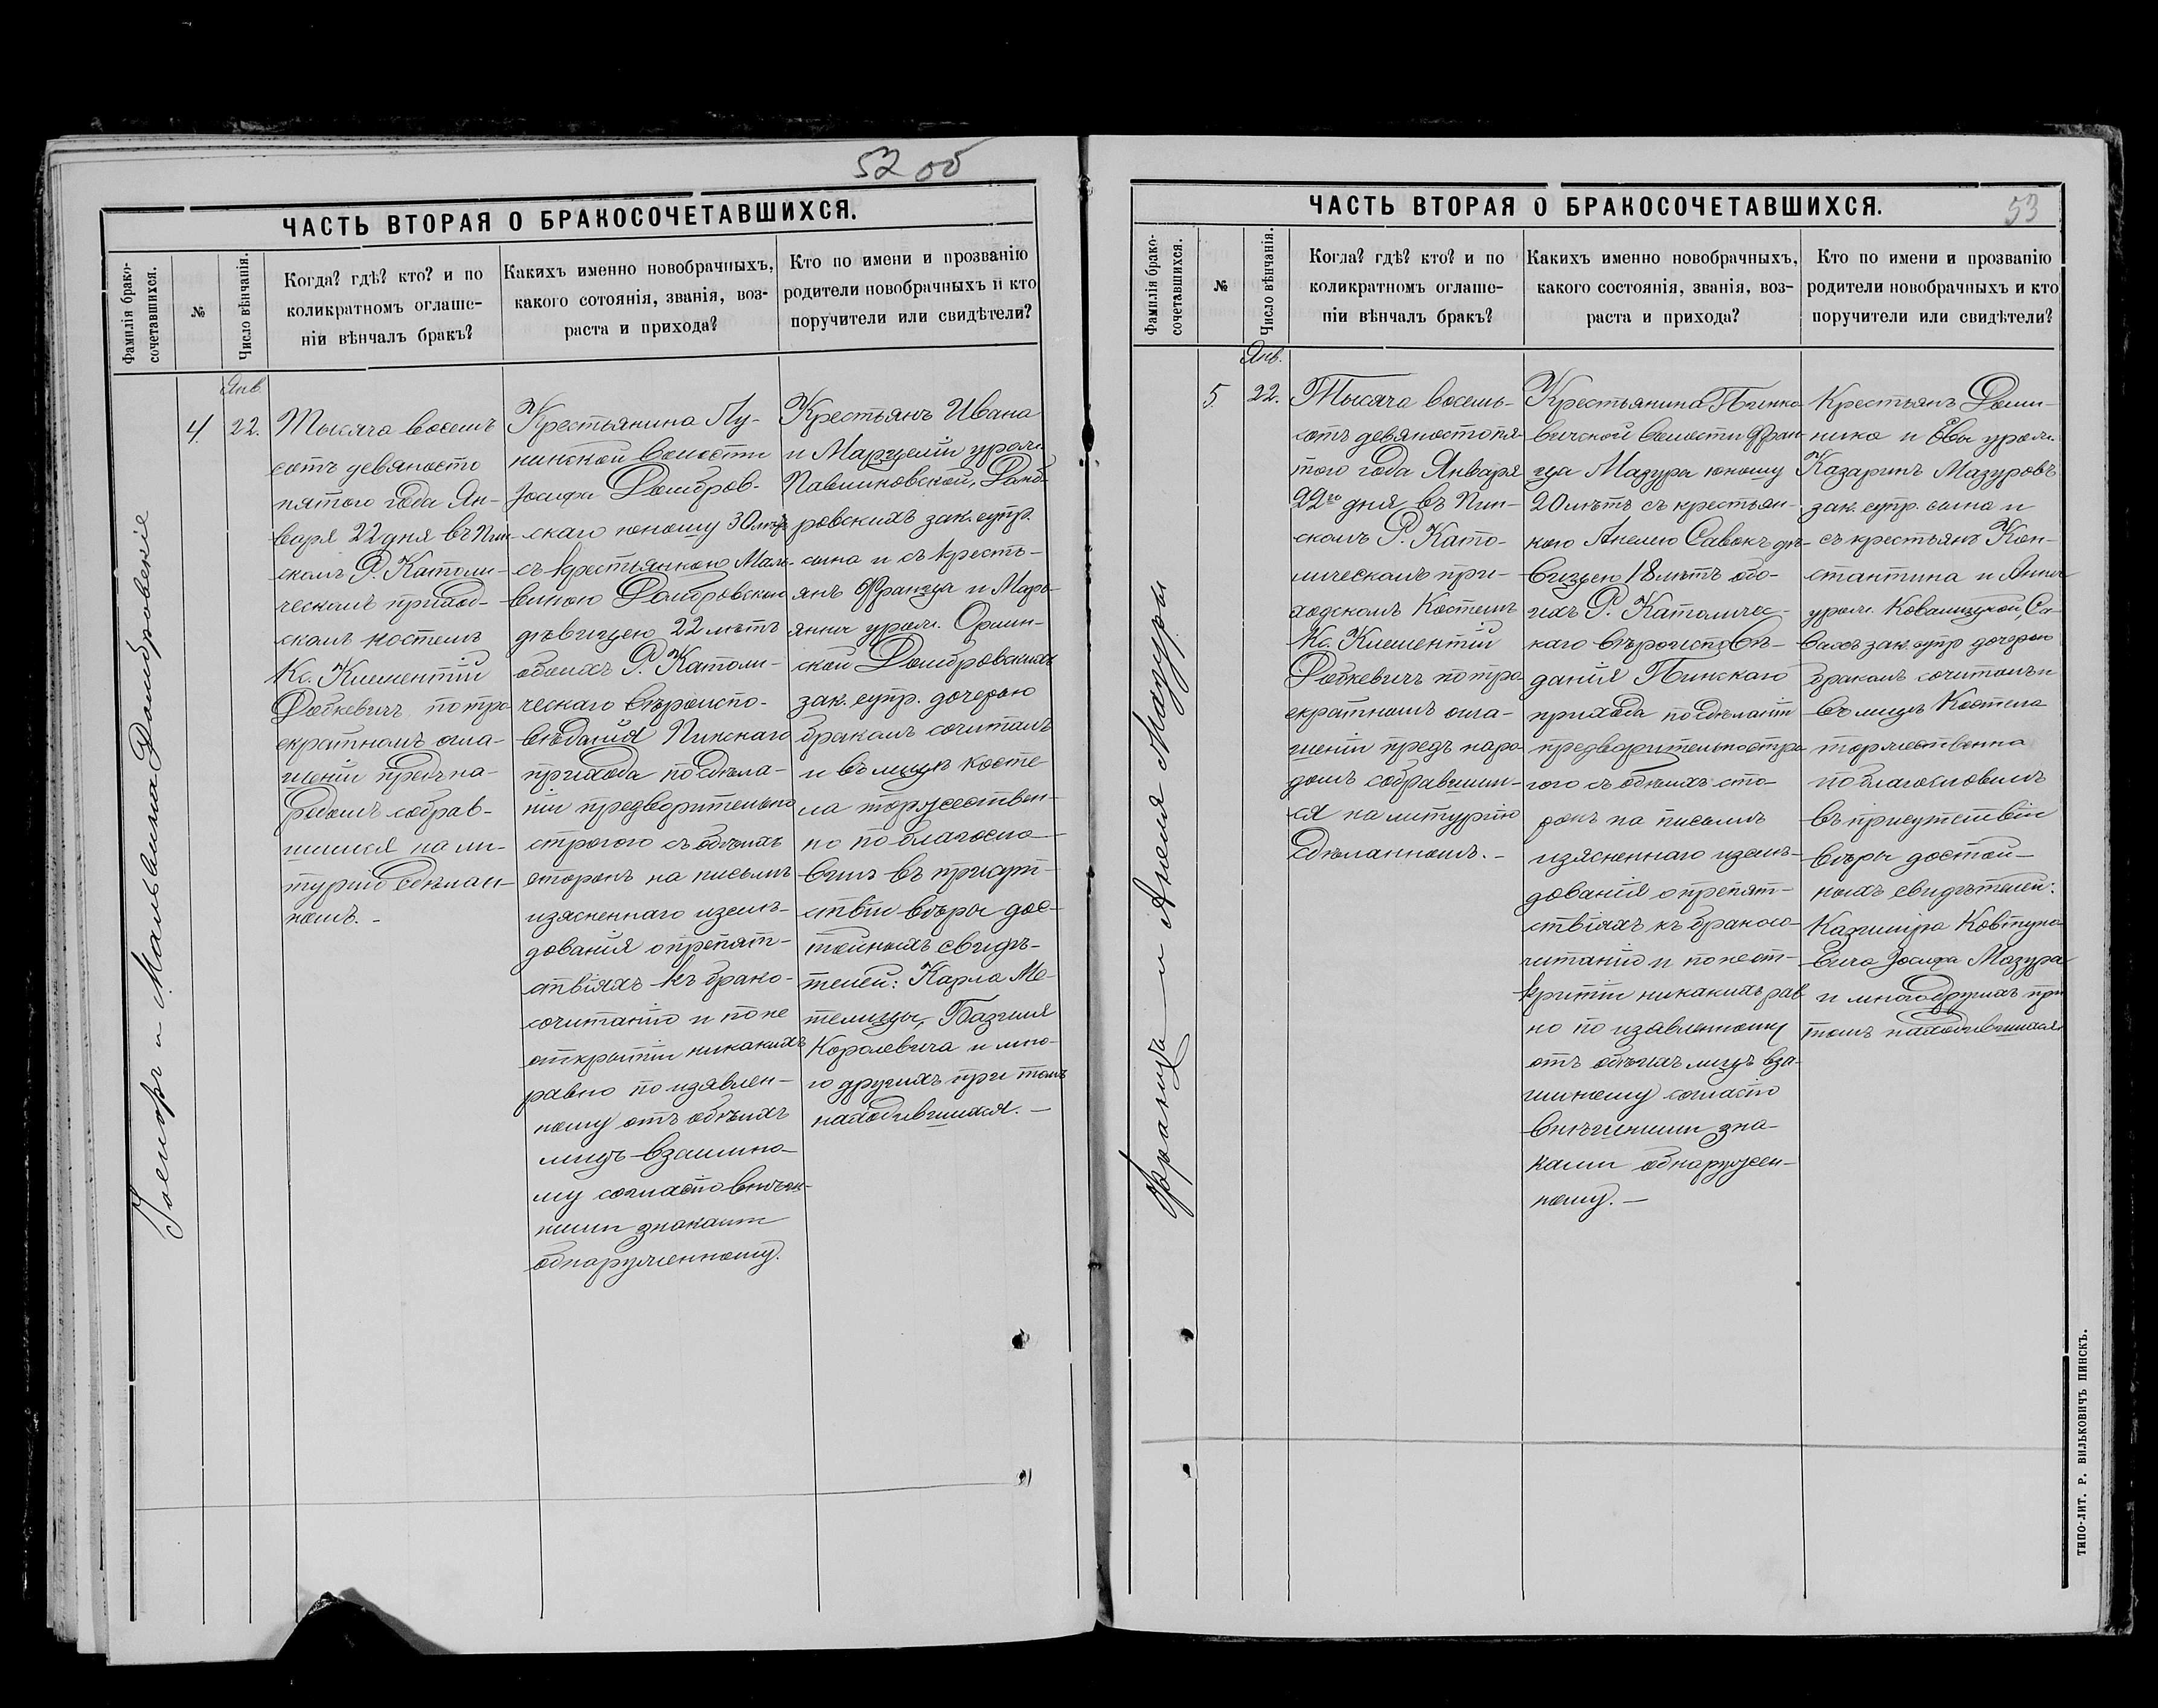 52 об
ЧАСТЬ ВТОРАЯ О БРАКОСОЧЕТАВШИХСЯ.
Фамилія брако-
сочетавшихся.
№
Число вѣнчанія.
Когда? гдѣ? кто? и по
коликратномъ оглаше-
ніи вѣнчалъ бракъ?
Какихъ именно новобрачныхъ,
какого сотоянія, званія, воз-
раста и прихода?
Кто по имени и прозванію
родители новобрачныхъ и кто
поручители или свидѣтели?
Іосифъ и Мальвина Домбровскіе
4.
Янв.
22.
Тысяча восемъ
сотъ девяносто
пятого года Ян-
варя 22 дня въ Пин-
скомъ Р. Католи-
ческомъ приход-
скомъ костелъ
Кс. Климентій
Добкевичъ по тро-
екратномъ огла-
шеніи предъ на-
родомъ собрав-
шимся на ли-
тургію сдѣлан-
номъ. -
Крестьянина Лу-
нинской волости
Іосифа Домбров-
скаго юношу 30 лѣтъ
съ крестьянкою Маль-
виною Домбровскою
дѣвицею 22 лѣтъ
обоихъ Р. Католи-
ческаго вѣроиспо-
вѣданія Пинскаго
прихода по сдѣла-
ніи предворительно
строгого съ обѣихъ
сторонъ на письмѣ
изясненнаго изслѣ-
дованія о препят-
ствіяхъ къ брако-
сочитанію и по не
открытіи никакихъ
равно по изявлен-
ному отъ обѣихъ
лицъ взаимно-
му согласію внѣш-
ними знаками
обнаруженному.
Крестьянъ Ивана
и Марцелій урож.
Павлиновской, Домб-
ровскихъ зак. супр.
сына и съ кресть-
янъ Франца и Марь-
янны урож. Орлин-
ской Домбровскихъ
зак. супр. дочерью
бракомъ сочиталъ
и въ лицѣ косте
ла торжествен-
но по благосло-
вилъ въ присут-
ствіи вѣры дос-
тойныхъ свидѣ-
телей: Карла Ме-
телицы, Базилія
Королевича и мно-
го другихъ при томъ
находившихся. -
53
ЧАСТЬ ВТОРАЯ О БРАКОСОЧЕТАВШИХСЯ.
Фамилія брако-
сочетавшихся.
№
Число вѣнчанія.
Когла? гдѣ? кто? и по
коликратномъ оглаше-
ніи вѣнчалъ бракъ?
Какихъ именно новобрачныхъ,
какого состоянія, званія, воз-
раста и прихода?
Кто по имени и прозванію
родители новобрачныхъ и кто
поручители или свидѣтели?
Франца и Анеля Мазуры
5.
Янв.
22.
Тысяча восемь-
сотъ девяносто пя-
того года Января
22го дня въ Пин-
скомъ Р. Като-
лическомъ при-
ходскомъ Костелъ
Кс. Климентій
Добкевичъ по тро-
екратномъ огла-
шеніи предъ наро-
домъ собравшим-
ся на литургію
сдѣланномъ. -
Крестьянина Пинко-
вичской волости Фран-
ца Мазура юношу
20 лѣтъ съ крестьян-
кою Анелею Савокъ дѣ-
вицею 18 лѣтъ обо-
ихъ Р. Католичес-
каго вѣроисповѣ-
данія Пинскаго
прихода по сдѣланіи
предворительно стро-
гого съ обѣихъ сто-
ронъ на письмѣ
изясненнаго изслѣ-
дованія о препят-
ствіяхъ къ бракосо-
читанію и по неот-
крытіи никакихъ рав
но по изявленному
отъ обѣихъ лицъ вза-
имному согласію
внѣшними зна-
ками обнаружен-
ному. -
Крестьянъ Доми-
ника и Евы урож.
Казаринъ Мазуровъ
зак. супр. сына и
съ крестьянъ Кон-
стантина и Анны
урож. Ковалицкой, Са-
вокъ зак. супр дочерью
бракомъ сочиталъ и
въ лицѣ Костела
торжественно
по благословилъ
въ присутствіи
вѣры достой-
ныхъ свидѣтелей:
Казиміра Ковтуно-
вича Іосифа Мазура
и много другихъ при
томъ находившихся
ТИПО-ЛИТ. Р. ВИЛЬКОВИЧЪ ПИНСКЪ.